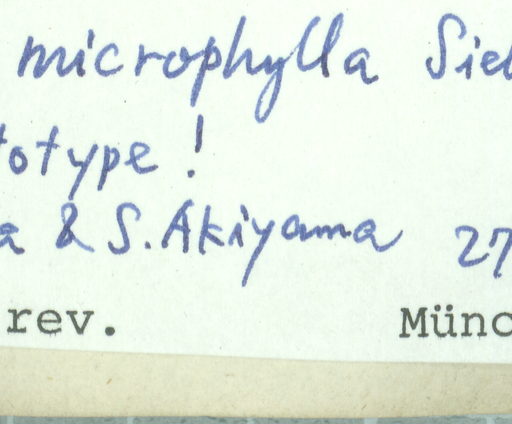 microphylla Sieb
totype !
a & S. Akiyama 27
rev. Münc